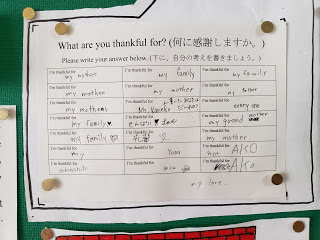 What are you thankful for? (何に感謝しますか。)
Please write your answer below. (下に、自分の考えを書きましょう。)
I'm thankful for my mother
I'm thankful for my family
I'm thankful for my family
I'm thankful for my mother
I'm thankful for my mother
I'm thankful for my father
I'm thankful for my mothers
I'm thankful for
I'm thankful for every one
I'm thankful for my family♥
I'm thankful for せんぱい♥
I'm thankful for my grand mother
I'm thankful for my family
I'm thankful for
I'm thankful for my mother
I'm thankful for my
I'm thankful for Yuna
I'm thankful for AKO
I'm thankful for
I'm thankful for
I'm thankful for AKO
my love